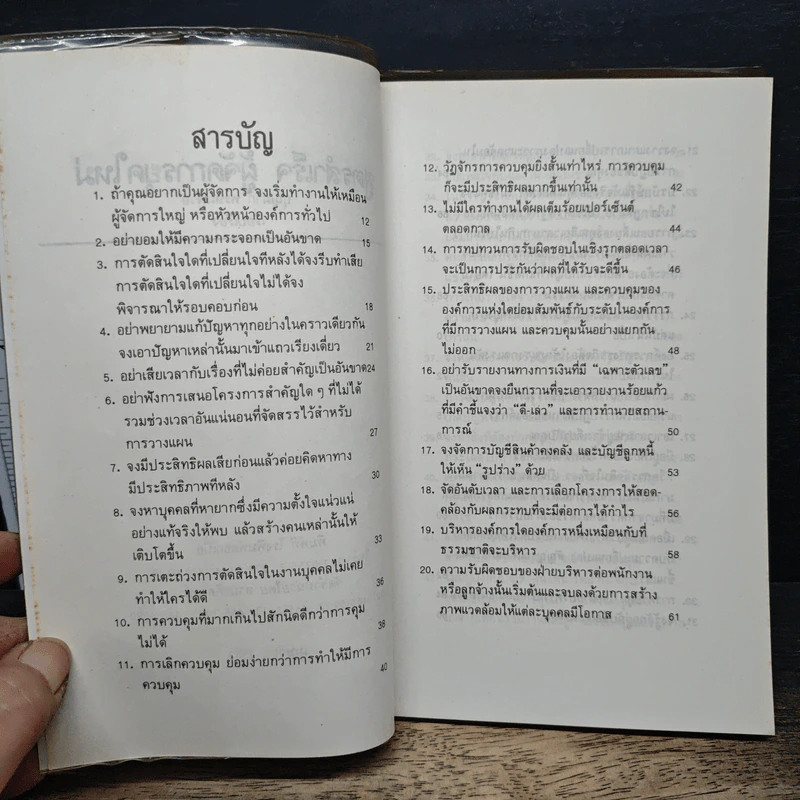 สารบัญ
1. ถ้าคุณอยากเป็นผู้จัดการ จงเริ่มทำงานให้เหมือน
ผู้จัดการใหญ่ หรือหัวหน้าองค์การทั่วไป 12
2. อย่ายอมให้มีความกระจอกเป็นอันขาด 15
3. การตัดสินใจใดที่เปลี่ยนใจทีหลังได้จงรีบทำเสีย
การตัดสินใจใดที่เปลี่ยนใจไม่ได้จง
พิจารณาให้รอบคอบก่อน 18
4. อย่าพยายามแก้ปัญหาทุกอย่างในคราวเดียวกัน
จงเอาปัญหาเหล่านั้นมาเข้าแถวเรียงเดี่ยว 21
5. อย่าเสียเวลากับเรื่องที่ไม่ค่อยสำคัญเป็นอันขาด 24
6. อย่าฟังการเสนอโครงการสำคัญใด ๆ ที่ไม่ได้
รวมช่วงเวลาอันแน่นอนที่จัดสรรไว้สำหรับ
การวางแผน 27
7. จงมีประสิทธิผลเสียก่อนแล้วค่อยคิดหาทาง
มีประสิทธิภาพทีหลัง 30
8. จงหาบุคคลที่หายากซึ่งมีความตั้งใจแน่วแน่
อย่างแท้จริงให้พบ แล้วสร้างคนเหล่านั้นให้
เติบโตขึ้น 33
9. การเตะถ่วงการตัดสินใจในงานบุคคลไม่เคย
ทำให้ใครได้ดี 36
10. การควบคุมที่มากเกินไปสักนิดดีกว่าการคุม
ไม่ได้ 38
11. การเลิกควบคุม ย่อมง่ายกว่าการทำให้มีการ
ควบคุม 40
12. วัฏจักรการควบคุมยิ่งสั้นเท่าไหร่ การควบคุม
ก็จะมีประสิทธิผลมากขึ้นเท่านั้น 42
13. ไม่มีใครทำงานได้ผลเต็มร้อยเปอร์เซ็นต์
ตลอดกาล 44
14. การทบทวนการรับผิดชอบในเชิงรุกตลอดเวลา
จะเป็นการประกันว่าผลที่ได้รับจะดีขึ้น 46
15. ประสิทธิผลของการวางแผน และควบคุมของ
องค์การแห่งใดย่อมสัมพันธ์กับระดับในองค์การ
ที่มีการวางแผน และควบคุมนั้นอย่างแยกกัน
ไม่ออก 48
16. อย่ารับรายงานทางการเงินที่มี “เฉพาะตัวเลข”
เป็นอันขาดจงยืนกรานที่จะเอารายงานร้อยแก้ว
ที่มีคำชี้แจงว่า “ดี-เลว” และการทำนายสถาน-
การณ์ 50
17. จงจัดการบัญชีสินค้าคงคลัง และบัญชีลูกหนี้
ให้เห็น “รูปร่าง” ด้วย 53
18. จัดอันดับเวลา และการเลือกโครงการให้สอด-
คล้องกับผลกระทบที่จะมีต่อการได้กำไร 56
19. บริหารองค์การใดองค์การหนึ่งเหมือนกับที่
ธรรมชาติจะบริหาร 58
20. ความรับผิดชอบของฝ่ายบริหารต่อพนักงาน
หรือลูกจ้างนั้นเริ่มต้นและจบลงด้วยการสร้าง
ภาพแวดล้อมให้แต่ละบุคคลมีโอกาส 61